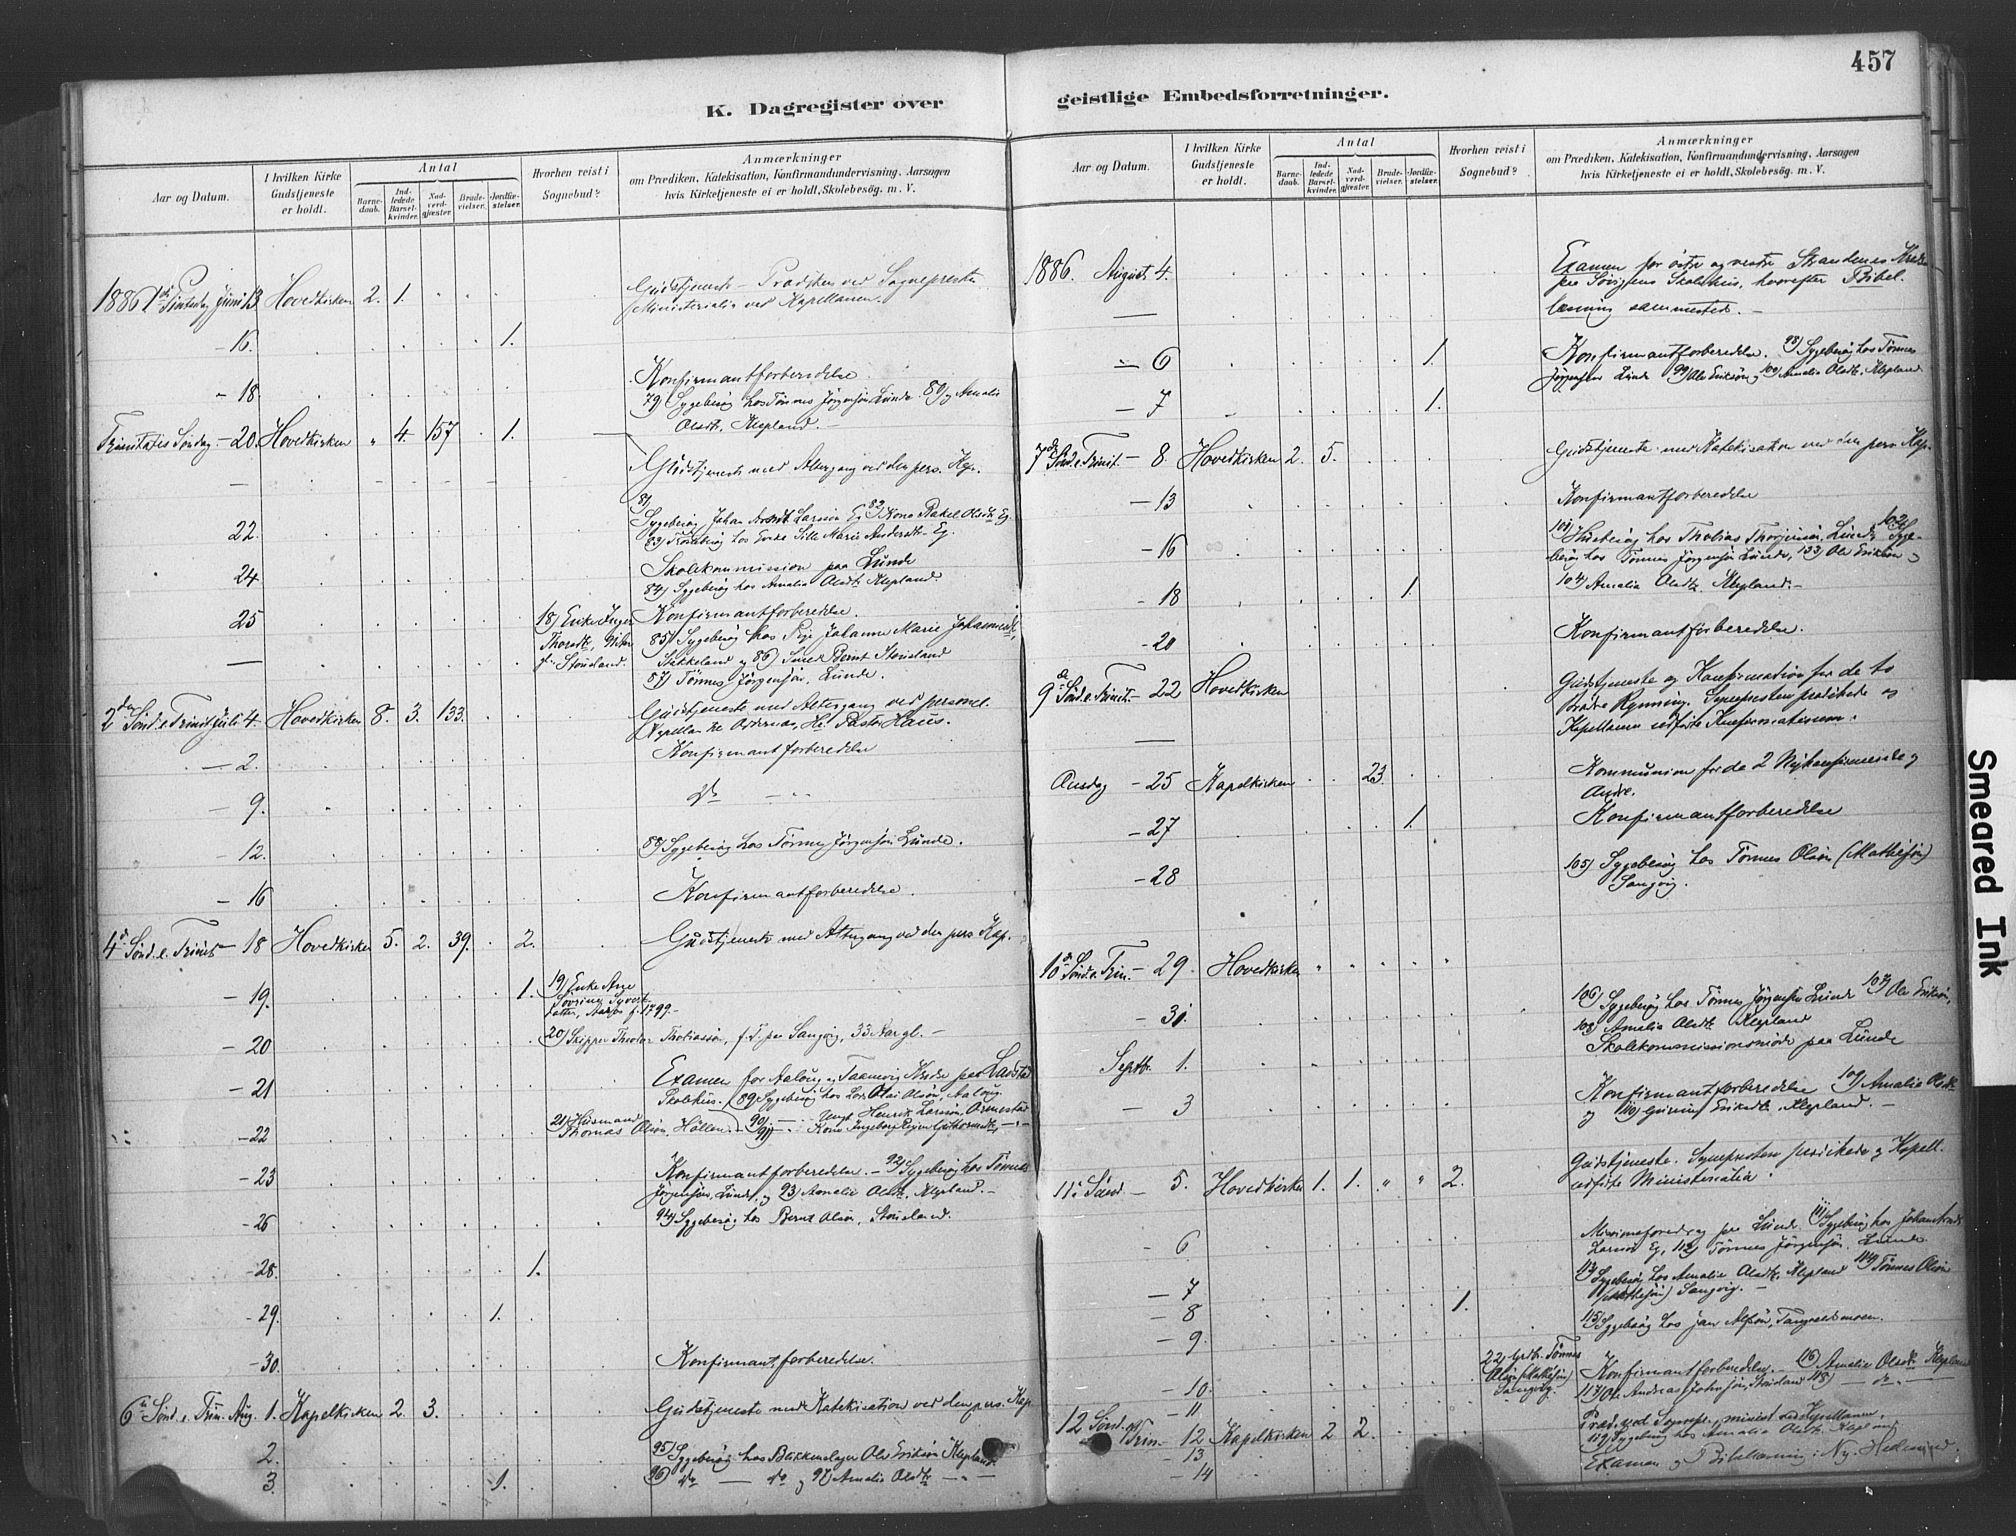 457
K. Dagregister over
geistlige Embedsforretninger.
Aar og Datum.
I hvilken Kirke Gudstjeneste er holdt.
Antal
Barnedaab.
Indledede Barselkvinder.
Nadverdgjæster.
Brudevielser.
Jordfæstelser.
Hvorhen reist i Sognebud?
Anmærkninger
om Prædiken, Katekisation, Konfirmandundervisning, Aarsagen
hvis Kirketjeneste ei er holdt, Skolebesøg. m. V.
1886 1ste Pintsedag Juni 13 Hovedkirken 2. 1. Gudstjeneste - Prædiken ved Sognepresten
Ministerialia ved Kapellanen.
- 16. 1.
- 18 Konfirmantforberedelse.
79) Sygebesøg hos Tønnes Jørgensøn Lunde. 80) Amalie
Olsdt. Klepland. -
Trinitatis Søndag - 20. Hovedkirken " 4. 157 1.
Gudstjeneste med Altergang ved den pers. Kap.
22. 81) Sygebesøg Johan Arndt Larsen Eg 82) Kone Rakel Olsdt. Eg.
83) hos Enke Sille Marie Andersdt. Eg.
24 Skolekommission paa Lunde
84) Sygebesøg hos Amalie Olsdt. Klepland
25 18) Enke Inger Konfirmantforberedelse.
Thorsdt. 85) Sygebesøg hos Pige Johanne Marie
Stousland. Stakkeland og 86) Bernt Stousland
87) Tønnes Jørgensøn, Lunde.
2den Sønd. e. Trinit Juli 4. Hovedkirken 8. 3. 133. Gudstjeneste med Altergang ved personel.
Kapellan Hr. Pastor Haus.
- 2. Konfirmantforberedelse
- 9. do - "
- 12. 88) Sygebesøg hos Tønnes Jørgensøn Lunde.
- 16 Konfirmantforberedelse.
4d Sønd. e. Trinit - 18 Hovedkirken 5. 2. 39. 2. Gudstjeneste med Altergang ved den pers Kap.
- 19. 1. 19) Enke
f. 1799.
- 20 20) Skipper Theodor Thobiassøn, f. T. paa Sangvig, 33 Aar gl. -
- 21 Examen for Aaloug og Kreds paa
Skolehus. (89 Sygebesøg hos Olai Olsøn, Aaloug.
- 22 21) Husmand 90) - Henrik Larsøn,
Thomas Olsøn Høllen. 91) - Kone Ingeborg
- 23 Konfirmantforberedelse. - 92) Sygebesøg hos Tønnes
Jørgensøn, Lunde, og 93) Amalie Olsdt. Klepland. -
- 26 94) Sygebesøg hos Bernt Olsøn, Stousland.
- 28. 1.
- 29. 1.
- 30. Konfirmantforberedelse.
6te Sønd. e. Trin. Aug. 1. Kapelkirken 2. 3. Gudstjeneste med Katekisation ved den pers. Kap.
2. 95) Sygebesøg hos Blikkenslager Ole Eriksøn Klepland
3. 1. 96) do - do og 97) Amalie Olsdt. -
Aar og Datum.
I hvilken Kirke Gudstjeneste er holdt.
Antal
Barnedaab.
Indledede Barselkvinder.
Nadverdgjæster.
Brudevielser.
Jordfæstelser.
Hvorhen reist i Sognebud?
Anmærkninger
om Prædiken, Katekisation, Konfirmandundervisning, Aarsagen
hvis Kirketjeneste ei er holdt, Skolebesøg. m. V.
1886. August. 4. Examen for østre og vestre Strandenes Kreds
paa Skolehus, hvorefter Bibel.
læsning sammesteds. -
- 6 1. Konfirmantforberedelse. 98) Sygebesøg hos Tønnes
Jørgensøn Lunde 99) Ole Eriksøn og 100) Amalie Olsdt. Klepland
- 7 1.
7de Sønd. e. Trinit. - 8 Hovedkirken 2. 5. Gudstjeneste med Katekisation ved den pers Kap.
- 13 Konfirmantforberedelse
- 16 101) Husbesøg hos Thobias Lunde, 102) Sygebesøg
hos Tønnes Jørgensøn Lunde, 103 Ole Eriksøn og
- 18 1. 104) Amalie Olsdt. Klepland. -
- 20 Konfirmantforberedelse.
9de Sønd. e. Trinit - 22 Hovedkirken Gudstjeneste og Konfirmation for de to
Brødre Rynning. Sognepresten prædikede og
Kapellanen udførte Konfirmationen.
Onsdag - 25 Kapelkirken 23. Kommunion for de 2 Nykonfirmerede og
Andre.
- 27 1. Konfirmantforberedelse
- 28 105) Sygebesøg hos Tønnes Olsøn (Mathisøn)
Sangvig.
10d Sønd. e. Trin. - 29. Hovedkirken " " " "
- 30. 106) Sygebesøg hos Tønnes Jørgensøn Lunde 107) Ole Eriksøn,
108) Amalie Olsdt Klepland
Septb. 1. Skolekommissionsmøde paa Lunde
- 3 Konfirmantforberedelse 109) Amalie Olsdt.
og 110) Eriksdt. Klepland. -
11te Sønd. - 5. Hovedkirken 1. 1. " " 2. Gudstjeneste. Sognepresten prædikede og Kapell.
udførte Ministerialia.
- 6 Missionsforedrag paa Lunde 111) Sygebesøg hos Johan Arndt
Larsøn Eg, 112) Tønnes Jørgensøn. Lunde
- 7 113) Sygebesøg hos Amalie Olsdt. Klepland 114) Tønnes Olsøn
(Mathisøn) Sangvig. -
- 8 1. 115) Sygebesøg hos Jens Tangvedsmoen.
- 9.
- 10. 22) Tønnes Konfirmantforberedelse. - 116) Amalie Olsdt. Klepland
Olsøn (Mathisøn) 117) Ole Andreas Stousland 118) - do. -
Sangvig.
- 11
12 Sønd. e. Trin. - 12 Kapelkirken 2 2. Præd. ved Sognepr., minist. ved Kapellanen.
- 13 119) Sygebesøg hos Amalie Olsdt. Klepland
- 14 Examen og Bibellæsning i Ny-Hellesund.
Smeared Ink